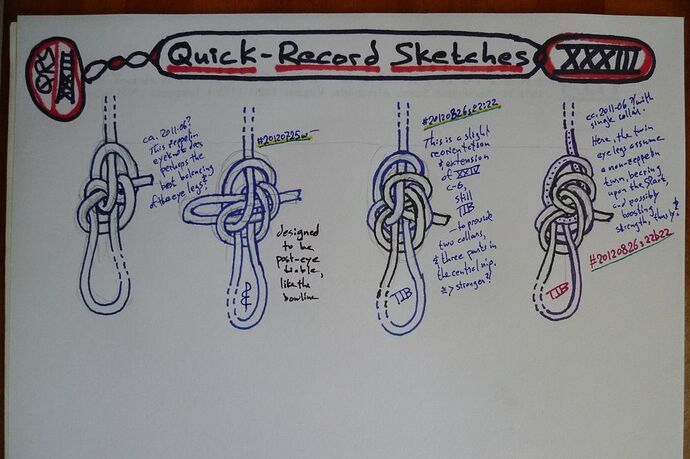 QRS
XXXIII
Quick-Record Sketches
XXXIII
ca. 2011-06?
This zeppelin
eyeknot has
perhaps the
best balancing
of the eye legs!
#20120725w
designed
to be
post-eye
tiable,
like the
bowline
#20120826s22:22
This is a slight
reorientation
& extension
of XXIV
c-6,
still
TIB
— to provide
two collars,
& three parts in
the central nip.
=> stronger?
TIB
ca. 2011-06? / with
single collar.
Here, the twin
eye legs assume
a non-zeppelin
turn, bearing
upon the SPart,
and possibly
boosting
strength, thusly.
#20120826s22b22
TIB